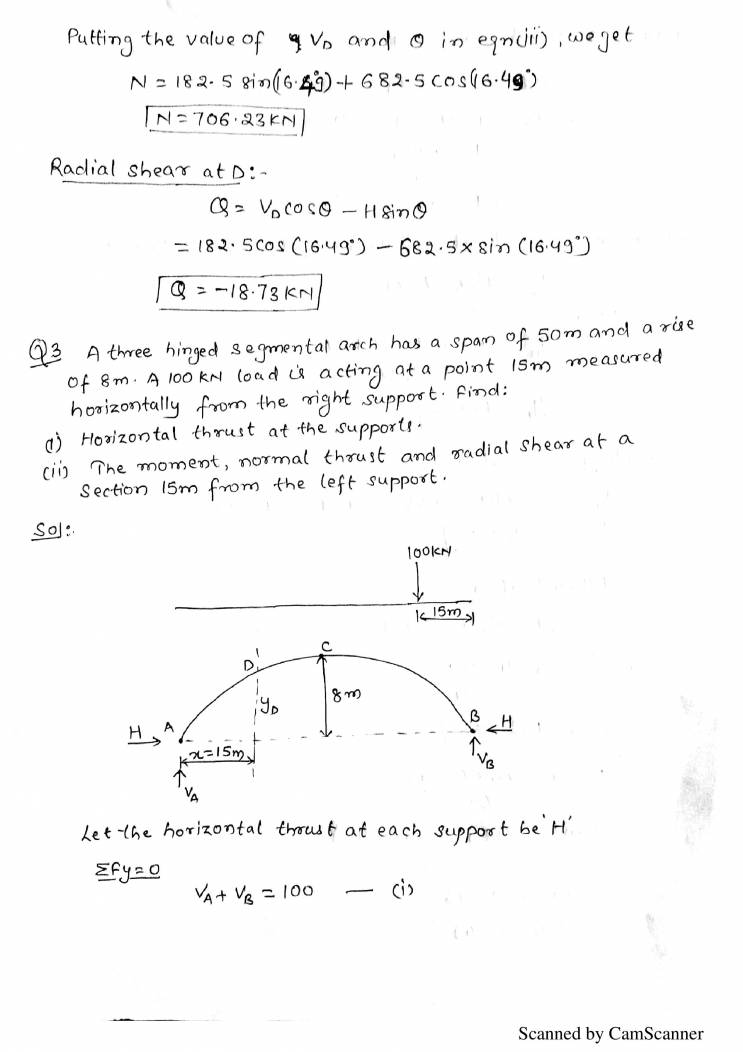 Putting the value of VD and θ in eqn(iii), we get
N = 182.5 sin(16.49°) + 682.5 cos(16.49°)
N = 706.23 KN
Radial shear at D:-
Q = VD cosθ - H sinθ
= 182.5 cos (16.49°) - 682.5 x sin (16.49°)
Q = -18.73 KN
Q3 A three hinged segmental arch has a span of 50m and a rise
of 8m. A 100 KN load is acting at a point 15m measured
horizontally from the right support. Find:
(i) Horizontal thrust at the supports.
(ii) The moment, normal thrust and radial shear at a
section 15m from the left support.
Sol:
100KN
15m
C
D
yD
8m
H A
B H
x=15m
VB
VA
Let the horizontal thrust at each support be 'H'
Σfy=0
VA + VB = 100 — (i)
Scanned by CamScanner